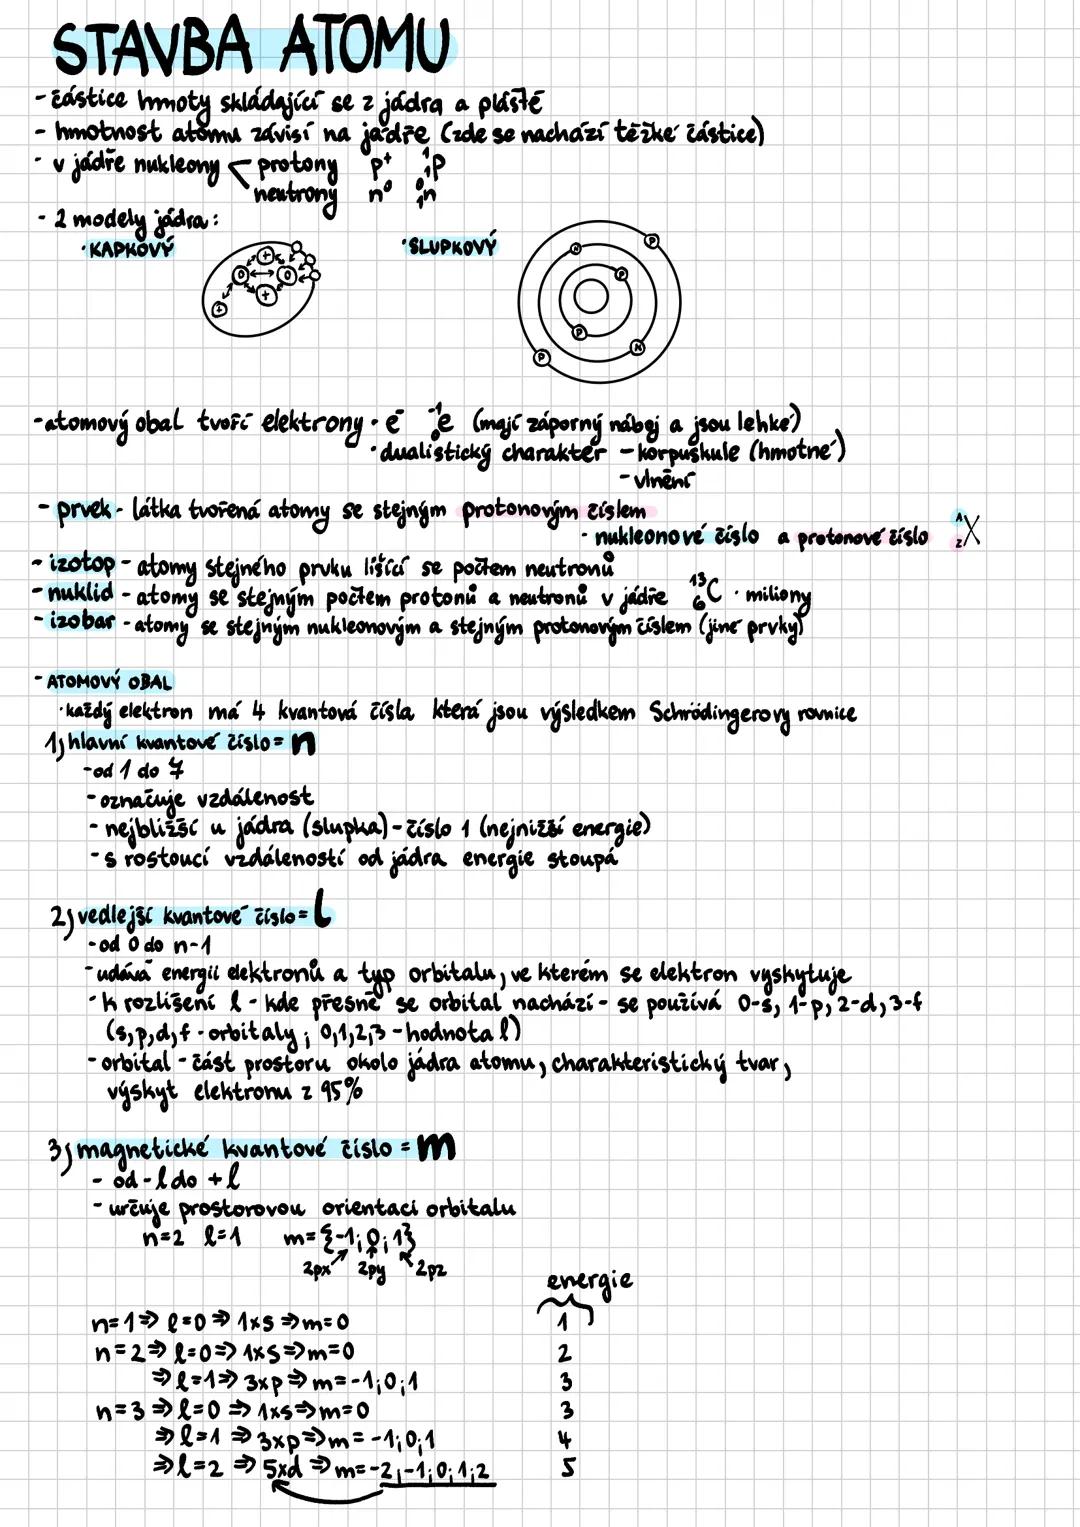 STAVBA ATOMU
- částice hmoty skládající se z jádra a pláště
- hmotnost atomu závisí na jádře (zde se nachází těžké částice)
- v jádře nukleony protony p⁺ ¹₁p
neutrony n⁰ ⁰₁n
- 2 modely jádra:
· KAPKOVÝ · SLUPKOVÝ
- atomový obal tvoří elektrony · e⁻ ⁻¹₀e (mají záporný náboj a jsou lehké)
· dualistický charakter - korpuskule (hmotné)
- vlnění
- prvek - látka tvořená atomy se stejným protonovým číslem
- nukleonové číslo a protonové číslo ᴬzX
- izotop - atomy stejného prvku lišící se počtem neutronů
- nuklid - atomy se stejným počtem protonů a neutronů v jádře ¹³₆C · miliony
- izobar - atomy se stejným nukleonovým a stejným protonovým číslem (jiné prvky)
- ATOMOVÝ OBAL
· každý elektron má 4 kvantová čísla která jsou výsledkem Schrödingerovy rovnice
1) hlavní kvantové číslo = n
- od 1 do 7
- označuje vzdálenost
- nejbližší u jádra (slupka) - číslo 1 (nejnižší energie)
- s rostoucí vzdáleností od jádra energie stoupá
2) vedlejší kvantové číslo = l
- od 0 do n-1
- udává energii elektronů a typ orbitalu, ve kterém se elektron vyskytuje
- k rozlišení l - kde přesně se orbital nachází - se používá 0-s, 1-p, 2-d, 3-f
(s, p, d, f - orbitaly ; 0,1,2,3 - hodnota l)
- orbital - část prostoru okolo jádra atomu, charakteristický tvar,
výskyt elektronu z 95%
3) magnetické kvantové číslo = m
- od -l do +l
- určuje prostorovou orientaci orbitalu
n=2 l=1 m={-1; 0; 1}
2px 2py 2pz
energie
n=1 ⇒ l=0 ⇒ 1xs ⇒ m=0 1
n=2 ⇒ l=0 ⇒ 1xs ⇒ m=0 2
⇒ l=1 ⇒ 3xp ⇒ m=-1; 0; 1 3
n=3 ⇒ l=0 ⇒ 1xs ⇒ m=0 3
⇒ l=1 ⇒ 3xp ⇒ m=-1; 0; 1 4
⇒ l=2 ⇒ 5xd ⇒ m=-2; -1; 0; 1; 2 5